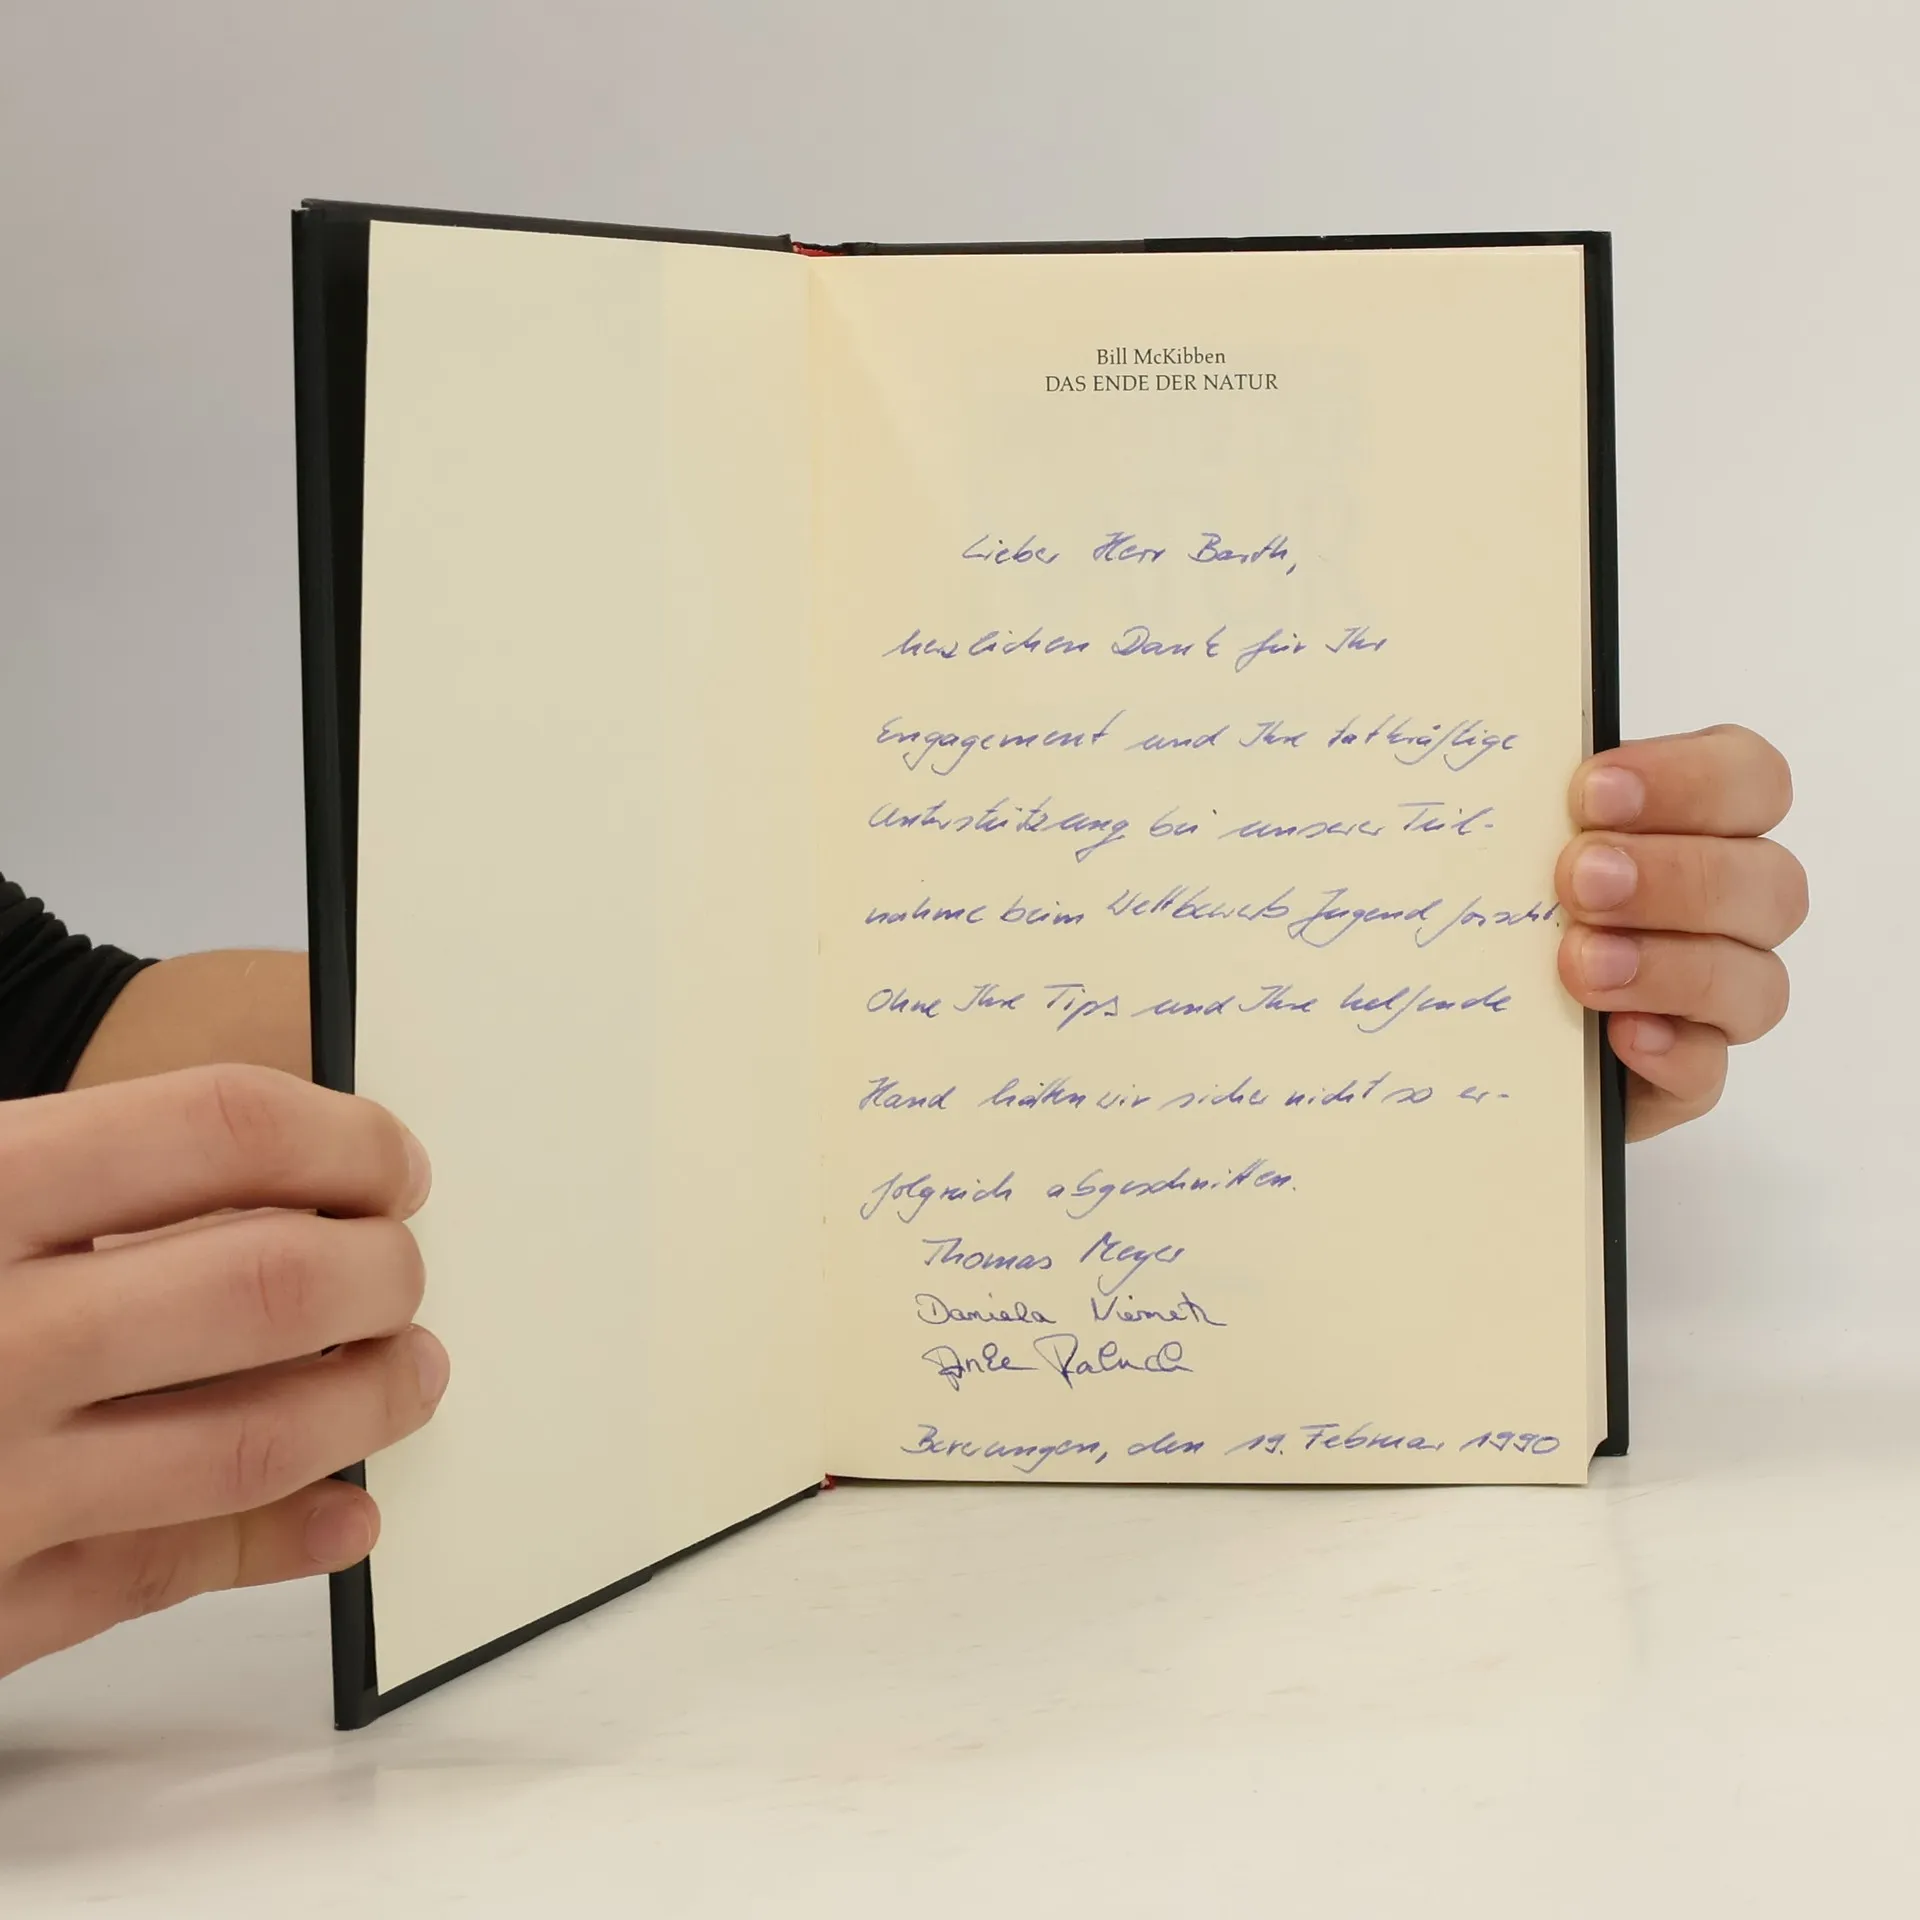 Bill McKibben
DAS ENDE DER NATUR
Lieber Herr Barth,
herzlichen Dank für Ihr
Engagement und Ihre tatkräftige
Unterstützung bei unserer Teil-
nahme beim Wettbewerb Jugend forscht.
Ohne Ihre Tips und Ihre helfende
Hand hätten wir sicher nicht so er-
folgreich abgeschnitten.
Thomas Meyer
Daniela
Anke
Beverungen, den 19. Februar 1990